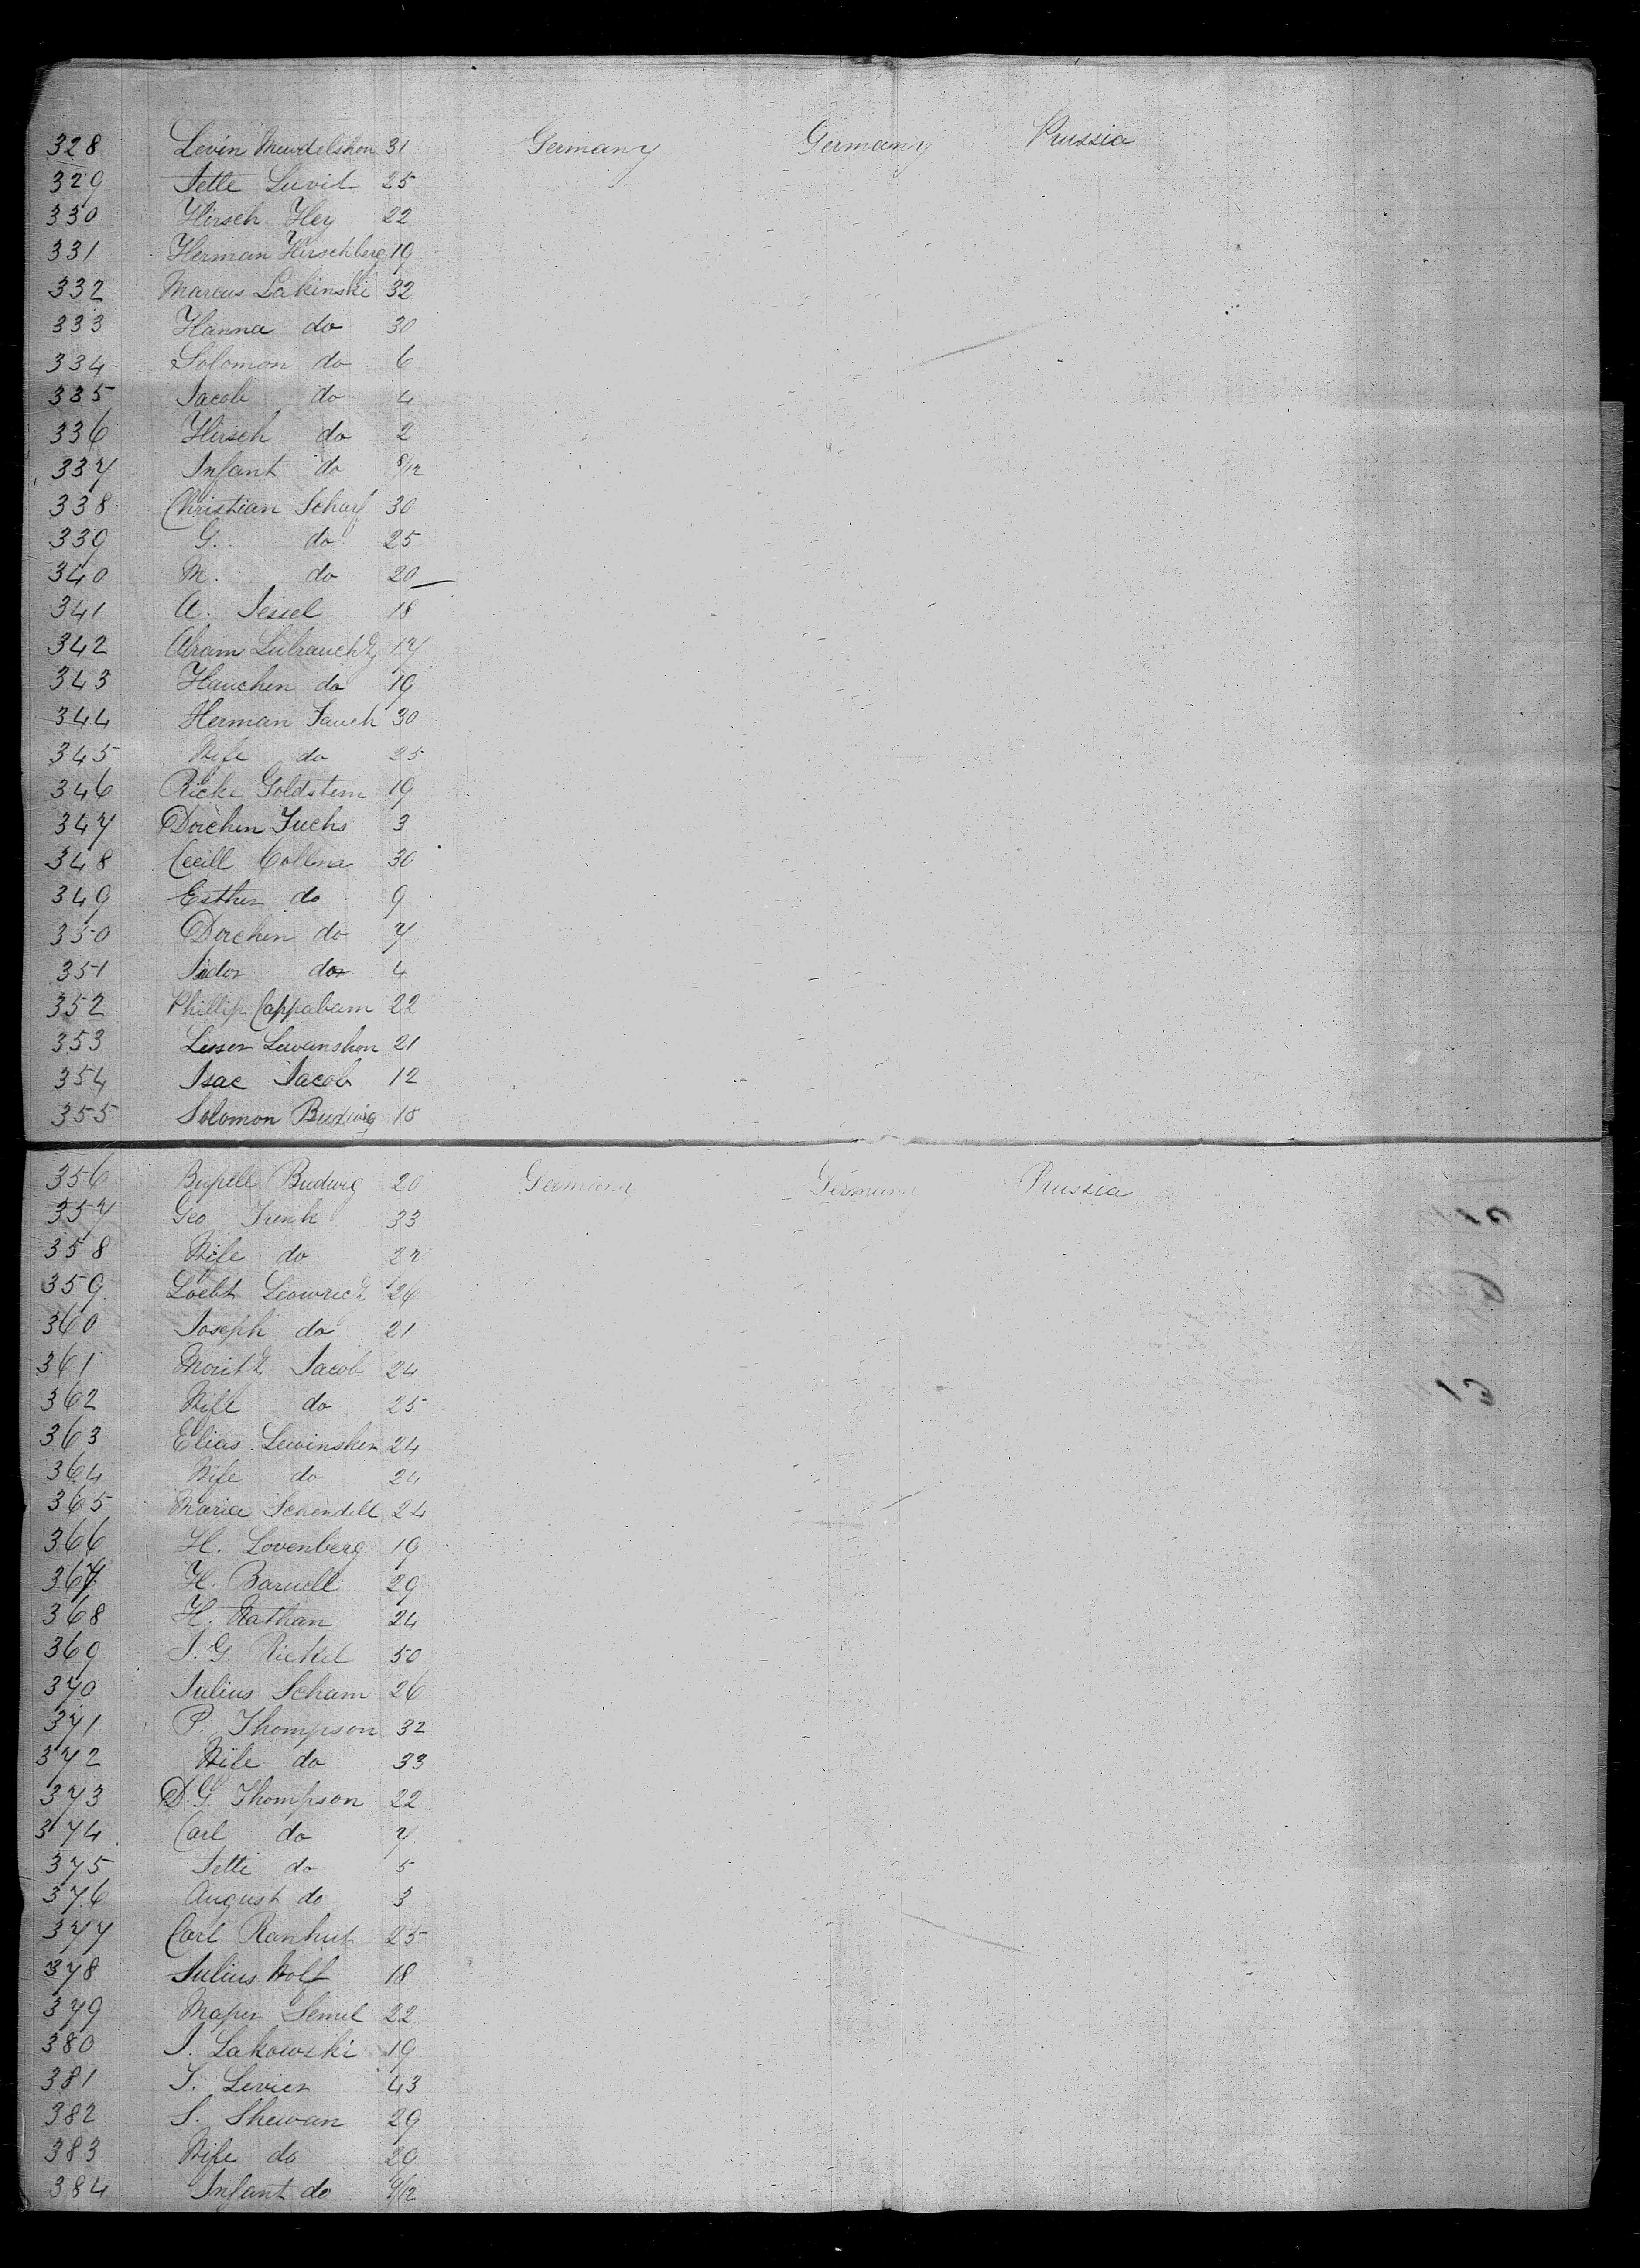 328 Levin Mewdelshon 31 Germany Germany Prussia
329 Jette Luvit 25
330 Hirsch Hey 22
331 Herman Hirschberg 19
332 Marcus Lakinski 32
333 Hanna do 30
334 Solomon do 6
335 Jacob do 4
336 Hirsch do 2
337 Infant do 8/12
338 Christian Scharf 30
339 G. do 25
340 M. do 20
341 A. Jessel 18
342 Abram 17
343 Hauchen do 19
344 Herman Jauch 30
345 Wife do 25
346 Ricke Goldstein 19
347 Dorchen Fuchs 3
348 Cecill 30
349 Esther do 9
350 Dorchen do 7
351 Isidor do 4
352 Phillip Cappabam 22
353 Lesser Lewanshon 21
354 Isac Jacob 12
355 Solomon Budwig 18
356 Budwig 20 Germany Germany Prussia
357 Geo Trenk 33
358 Wife do
359 26
360 Joseph do 21
361 Moritz Jacob 24
362 Wife do 25
363 Elias Lewinsken 24
364 Wife do 24
365 Maria Schendell 24
366 H. Lovenberg 19
367 H. Baruell 29
368 H. Nathan 24
369 J. G. Rickel 50
370 Julius Scham 26
371 P. Thompson 32
372 Wife do 33
373 D. G. Thompson 22
374 Carl do 7
375 Jette do 5
376 August do 3
377 Carl Ranhut 25
378 Julius Wolf 18
379 Semel 22
380 J. Lakowski 19
381 J. Levien 43
382 S. Shewan 29
383 Wife do 29
384 Infant do 9/12